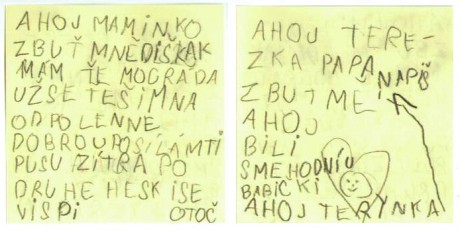 AHOJ MAMINKO
ZBUŤ MNĚ DIŠKAK
MÁM TĚ MOCRÁDA
UŽSE TEŠIMNA
ODPOLENNE
DOBROU POSÍLÁMTI
PUSU ZÍTRA PO
DRUHE HESKISE
VISPI
OTOČ
AHOJ TERE-
ZKA PAPA NAPIŠ
ZBUTME
AHOJ
BILI
SMEHODNÍU
BABIČKI
AHOJ TERYNKA